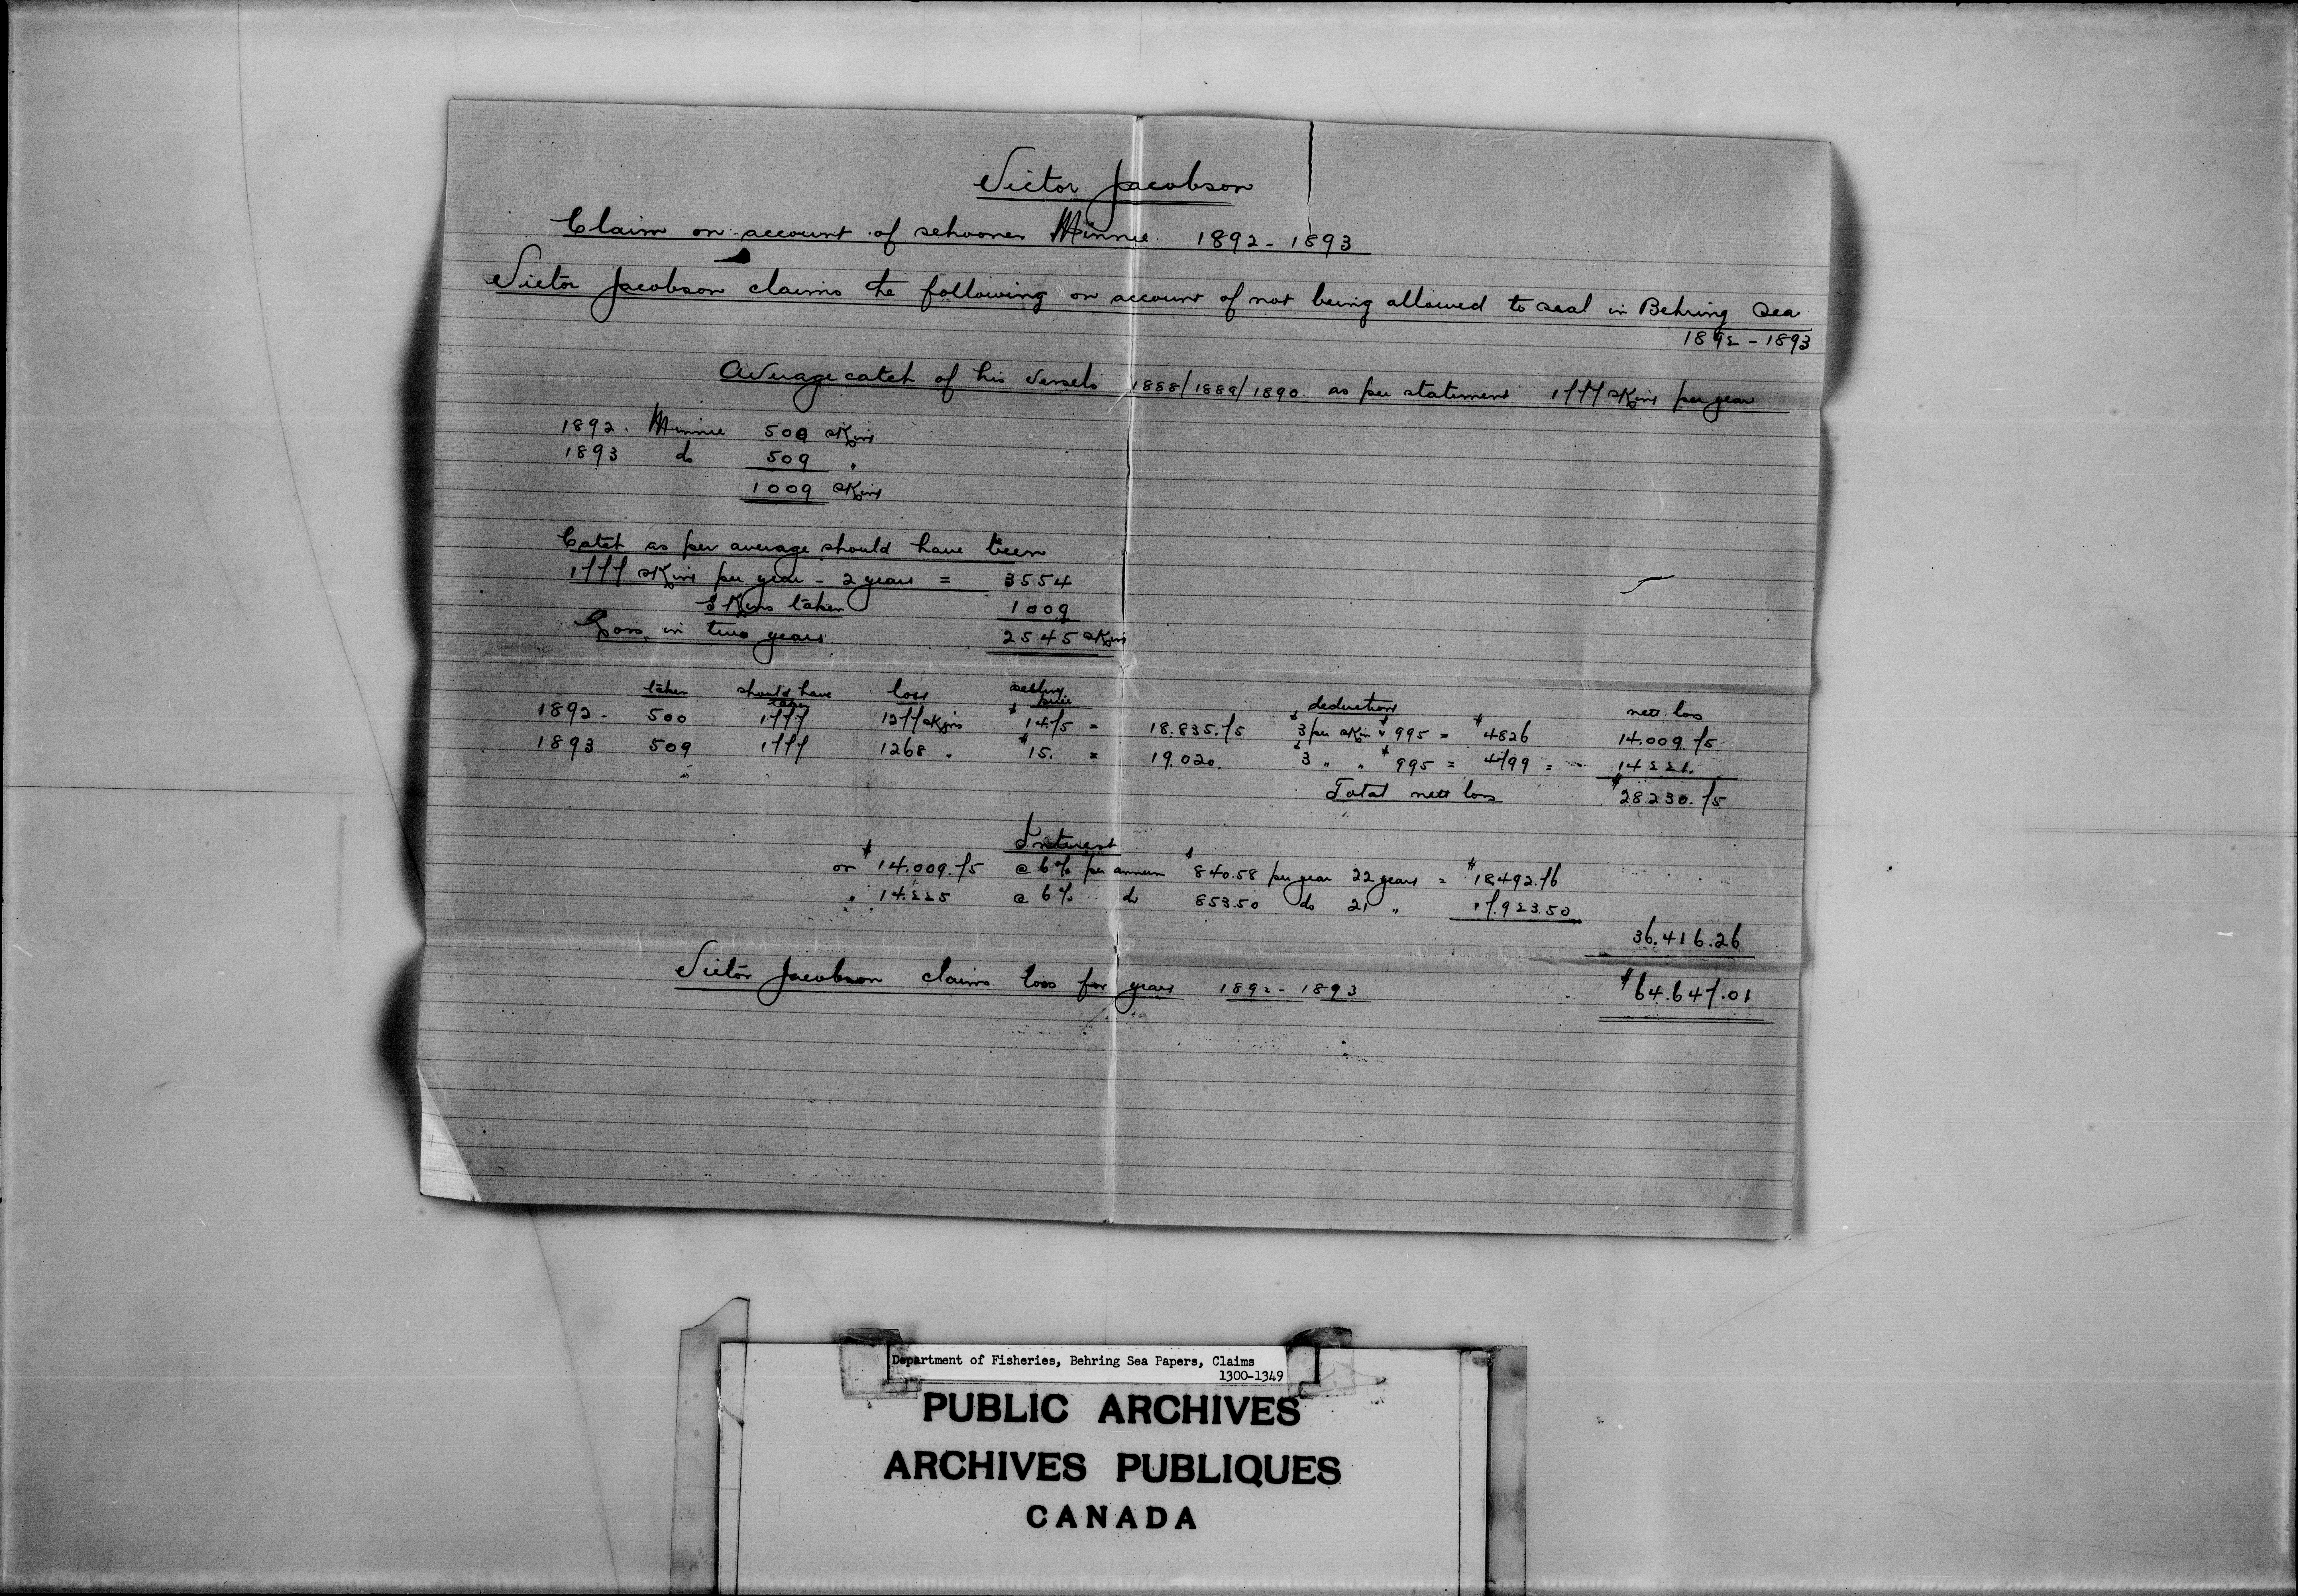 Victor Jacobson
Claim on account of schooner Minnie 1892-1893
Victor Jacobson claims the following on account of not being allowed to seal in Behring Sea
1892-1893
Average catch of his vessels 1888/1889/1890 as per statement 1777 skins per year
1892. Minnie 500 skins
1893 do 509 "
1009 skins
Catch as per average should have been
1777 skins per year - 2 years = 3554
Skins taken 1009
Loss in two years 2545 skins
taken should have taken loss selling price deductions nett loss
1892- 500 1777 1277 skins $14.75 = 18.835.75 $3 per skin & $995 = $4826 14.009.75
1893 509 1777 1268 " $15. = 19.020. $3 " " $995 = 4799 = 14221.
Total nett loss $28230.75
Interest
on $14.009.75 @ 6% per annum $840.58 per year 22 years = $18,492.76
" 14.225 @ 6% do 853.50 do 21 " 17.923.50
36.416.26
Victor Jacobson claims loss for years 1892-1893 $64.647.01
Department of Fisheries, Behring Sea Papers, Claims
1300-1349
PUBLIC ARCHIVES
ARCHIVES PUBLIQUES
CANADA